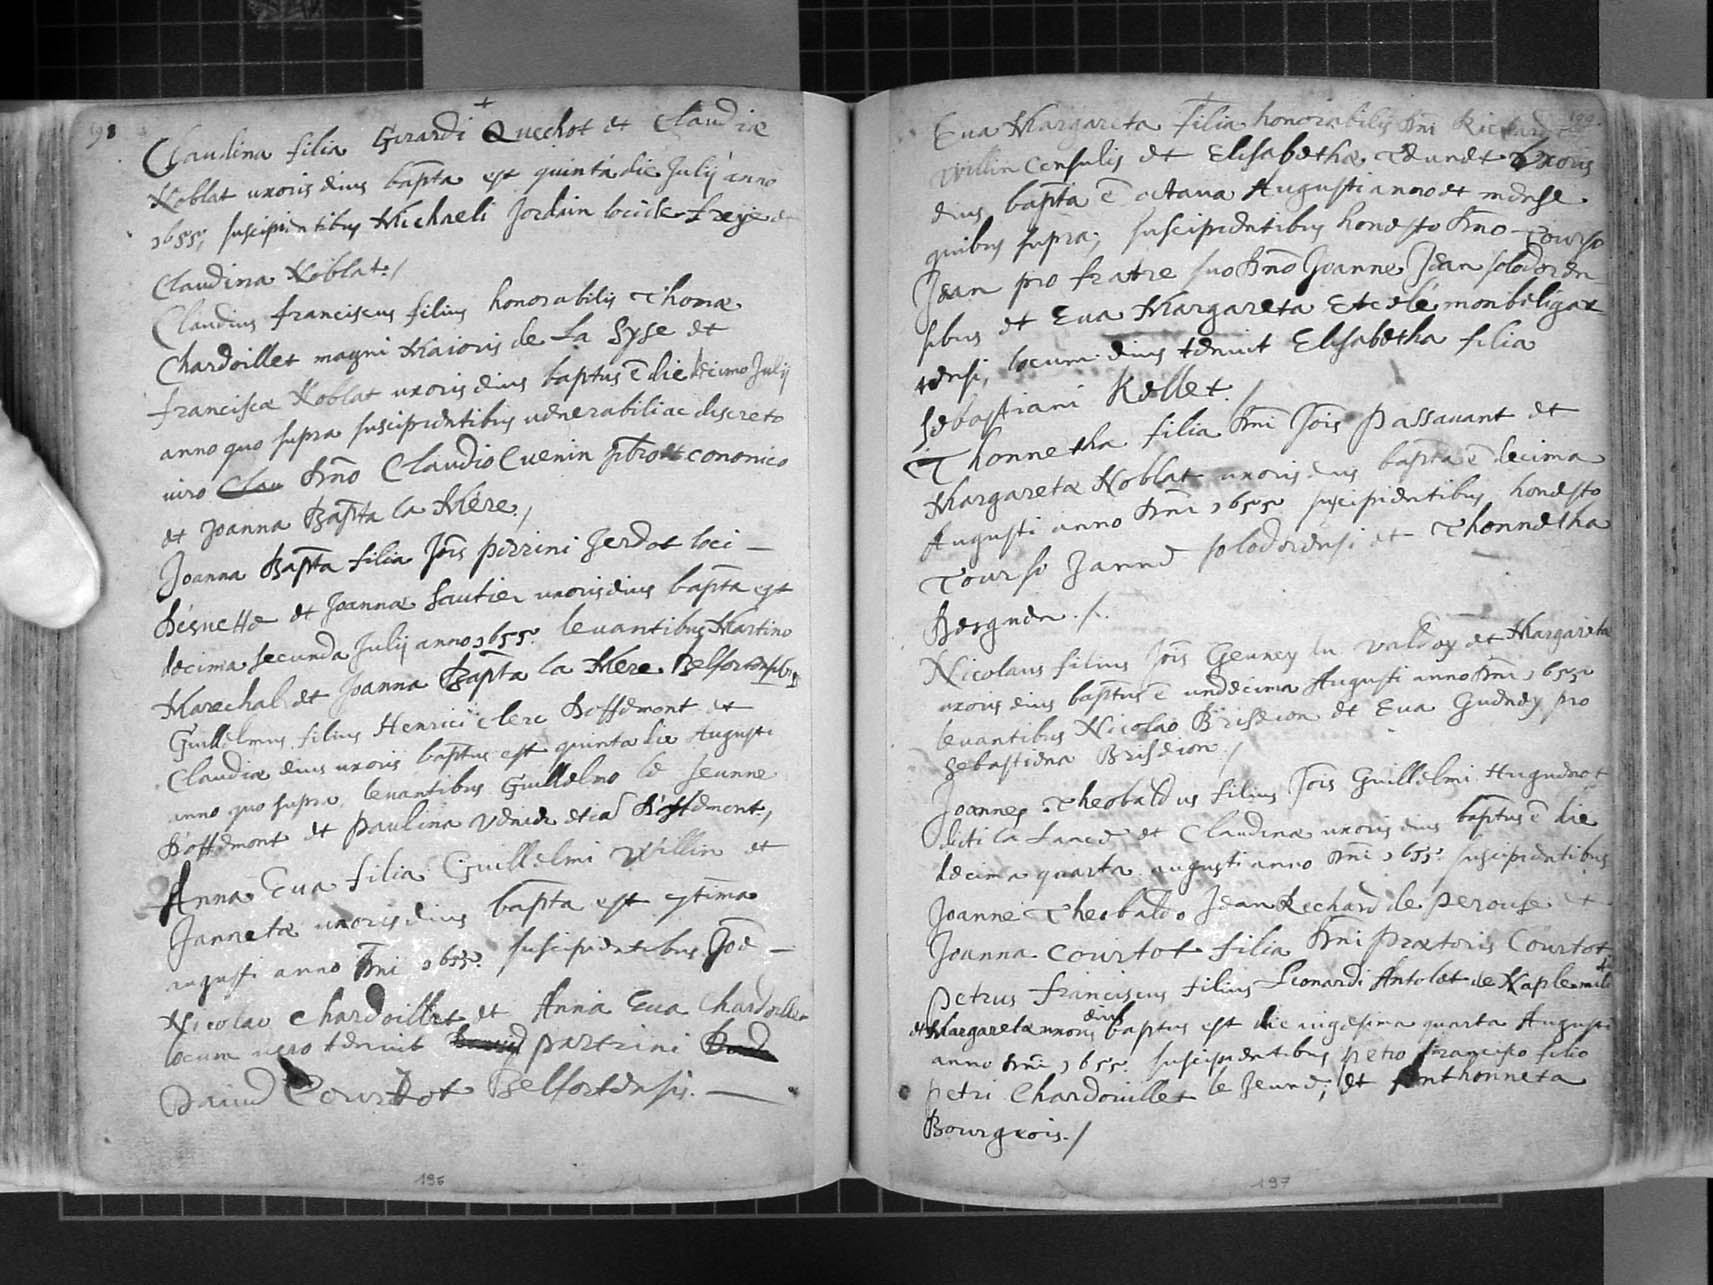 198
Claudina filia Girardi Quechot et Claudiæ
Noblat uxoris eius bapta est quinta die Julij anno
1655, suscipientibus Michaeli Jordain loci de
Claudina Noblat./
Claudius franciscus filius honorabilis Thomæ
Chardoillet magni Maioris de La Syse et
franciscæ Noblat uxoris eius baptus ē die decimo Julij
anno quo supra suscipientibus venerabili ac discreto
viro Dno Claudio Cuenin pbro et cononico
et Joanna Bapta la Mere./
Joanna Bapta filia Jois perrini Jerdot loci —
et Joannæ Sautier uxoris eius bapta est
decima secunda Julij anno 1655. levantibus Martino
Marechal et Joanna Bapta la Mere
Guillelmus filius Henrici clerc Doffemont et
Claudiæ eius uxoris baptus est quinta die Augusti
anno quo supra, levantibus Guillelmo le Jeunne
D'offemont et paulina D'offemont,
Anna Eua filia Guillelmi Willin et
Jannetæ uxoris eius bapta est
augusti anno Dni 1655. suscipientibus Joe —
Nicolao Chardoillet et Anna Eua Chardoillet
locum vero tenuit partrini
David Courtot Belfortensis. —
196
199
Eua Margareta filia honorabilis Dni Richardi
Willin Consulis et Elisabethæ uxoris
eius bapta ē octava Augusti anno et mense
quibus supra; suscipientibus honesto Dno Tourso
Jean pro fratre suo Dno Joanne Jean soloder en-
sibus et Eua Margareta monbeligar
tensi, locum eius tenuit Elisabetha filia
Sebastiani Kellet./
Thonnetha filia Dni Jois Passavant et
Margaretæ Noblat uxoris eius bapta ē decima
Augusti anno Dni 1655. suscipientibus honesto
Tourso Janne solodorensi et Thonnetha
./.
Nicolaus filius Jois Geuney du Valdoy et Margaretæ
uxoris eius baptus ē undecima Augusti anno Dni 1655.
levantibus Nicolao Briseion et Eua Gueney pro
Sebastiena Briseion./
Joannes Theobaldus filius Jois Guillelmi Huguenot
dicti la Lance et Claudinæ uxoris eius baptus ē die
decima quarta augusti anno Dni 1655. suscipientibus
Joanne Theobaldo Jean Rechard de perouse et
Joanna Courtot filia Dni prætoris Courtot
Petrus franciscus filius Leonardi Antolet de
et Margaretæ uxoris eius baptus est die vigesima quarta Augusti
anno Dni 1655. suscipientibus petro francisco filio
petri Chardouillet le Jeune; et Anthonneta
Bourgeois./
197